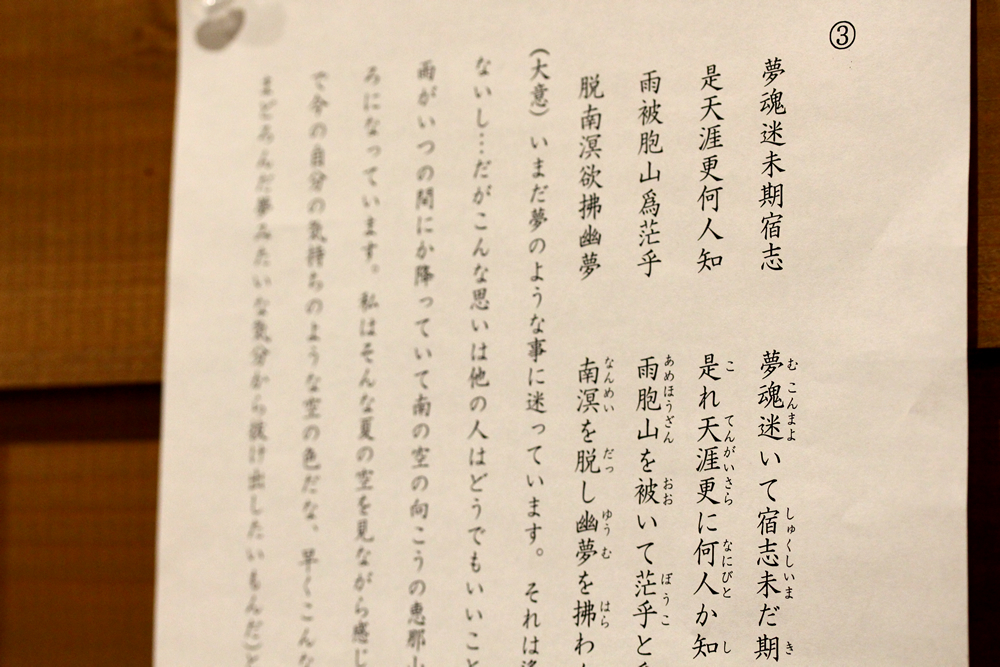 ③
夢魂迷未期宿志　夢魂迷いて宿志未だ期
む こんまよ しゅくしいま き
是天涯更何人知　是れ天涯更に何人か知
こ てんがいさら なにびと し
雨被胞山爲茫乎　雨胞山を被いて茫乎と
あめほうざん おお ぼうこ
脱南溟欲拂幽夢　南溟を脱し幽夢を拂わ
なんめい だっ ゆうむ はら
(大意)いまだ夢のような事に迷っています。それは
ないし…だがこんな思いは他の人はどうでもいいこと
雨がいつの間にか降っていて南の空の向こうの恵那山
ろになっています。私はそんな夏の空を見ながら感じ
で今の自分の気持ちのような空の色だな、早くこんな
まどろんだ夢みたいな気分から抜け出したいもんだ)と